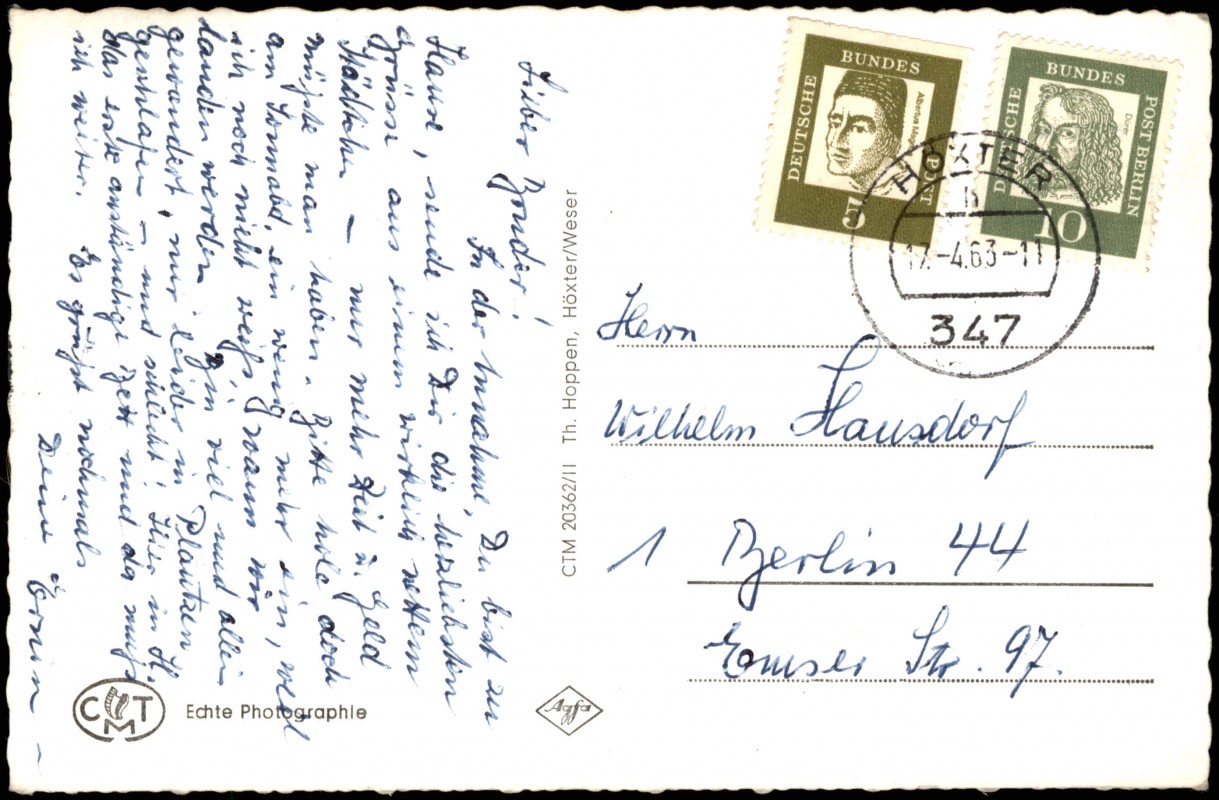 Lieber Bruder!
In der Annahme, Du bist zu
Hause, sende ich Dir die herzlichsten
Grüsse aus einem wirklich netten
Städtchen – nur mehr Zeit u. Geld
müsste man haben. Bitte hole doch
am Sonnabd. ein wenig mehr ein, weil
ich noch nicht weiß, wann wir
landen werden. Bin viel und allein
gewandert, nur leider in
geschlafen – und schlecht! Hier in H.
das erste anständige Bett und da muß
ich weiter. Es grüßt nochmals
Deine Erwin –
CTM 20362/11 Th. Hoppen, Höxter/Weser
CMT
Echte Photographie
Agfa
DEUTSCHE BUNDESPOST
Albertus Magnus
5
DEUTSCHE BUNDESPOST BERLIN
Dürer
10
HÖXTER
h
17.-4.63-11
347
Herrn
Wilhelm Hausdorf
1 Berlin 44
Emser Str. 97.